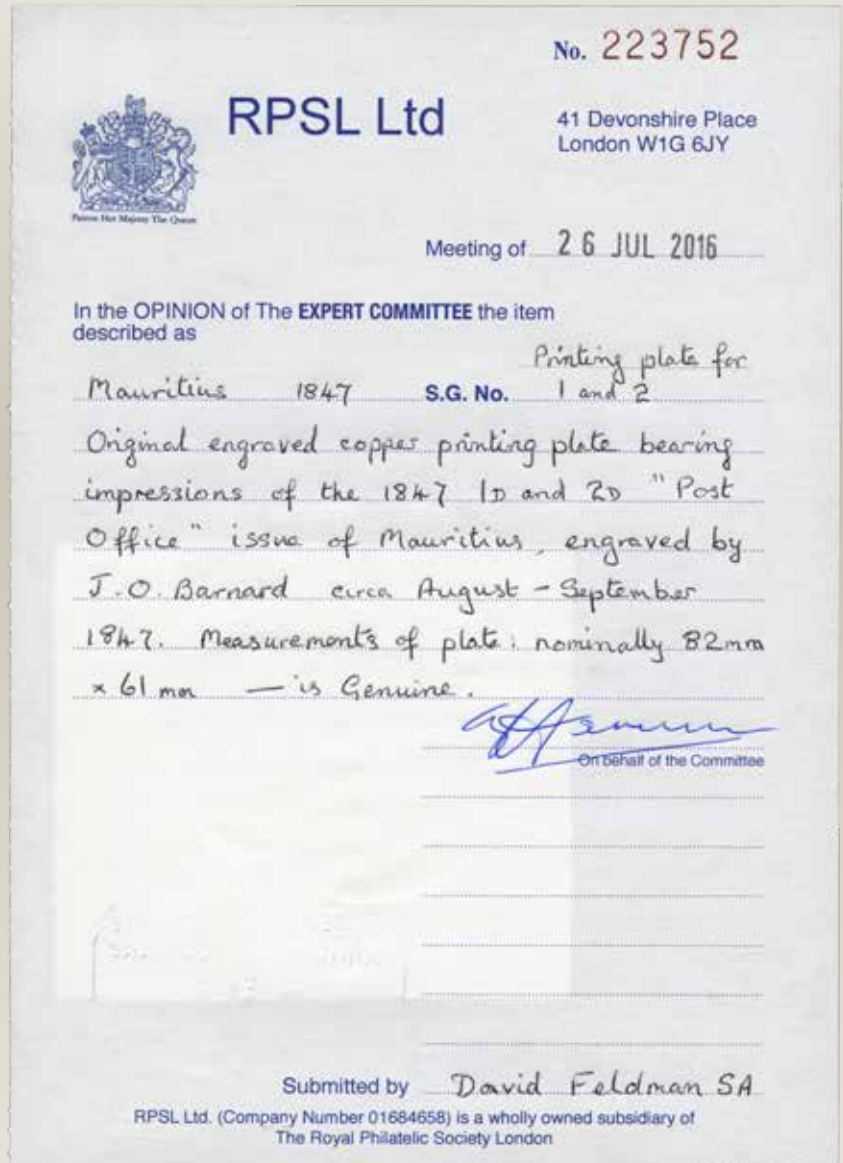 No. 223752
RPSL Ltd
41 Devonshire Place
London W1G 6JY
Patron Her Majesty The Queen
Meeting of 26 JUL 2016
In the OPINION of The EXPERT COMMITTEE the item
described as
Printing plate for
Mauritius 1847 S.G. No. 1 and 2
Original engraved copper printing plate bearing
impressions of the 1847 1D and 2D "Post
Office" issue of Mauritius, engraved by
J.O. Barnard circa August - September
1847. Measurements of plate: nominally 82mm
x 61 mm — is Genuine.
On behalf of the Committee
Submitted by David Feldman SA
RPSL Ltd. (Company Number 01684658) is a wholly owned subsidiary of
The Royal Philatelic Society London